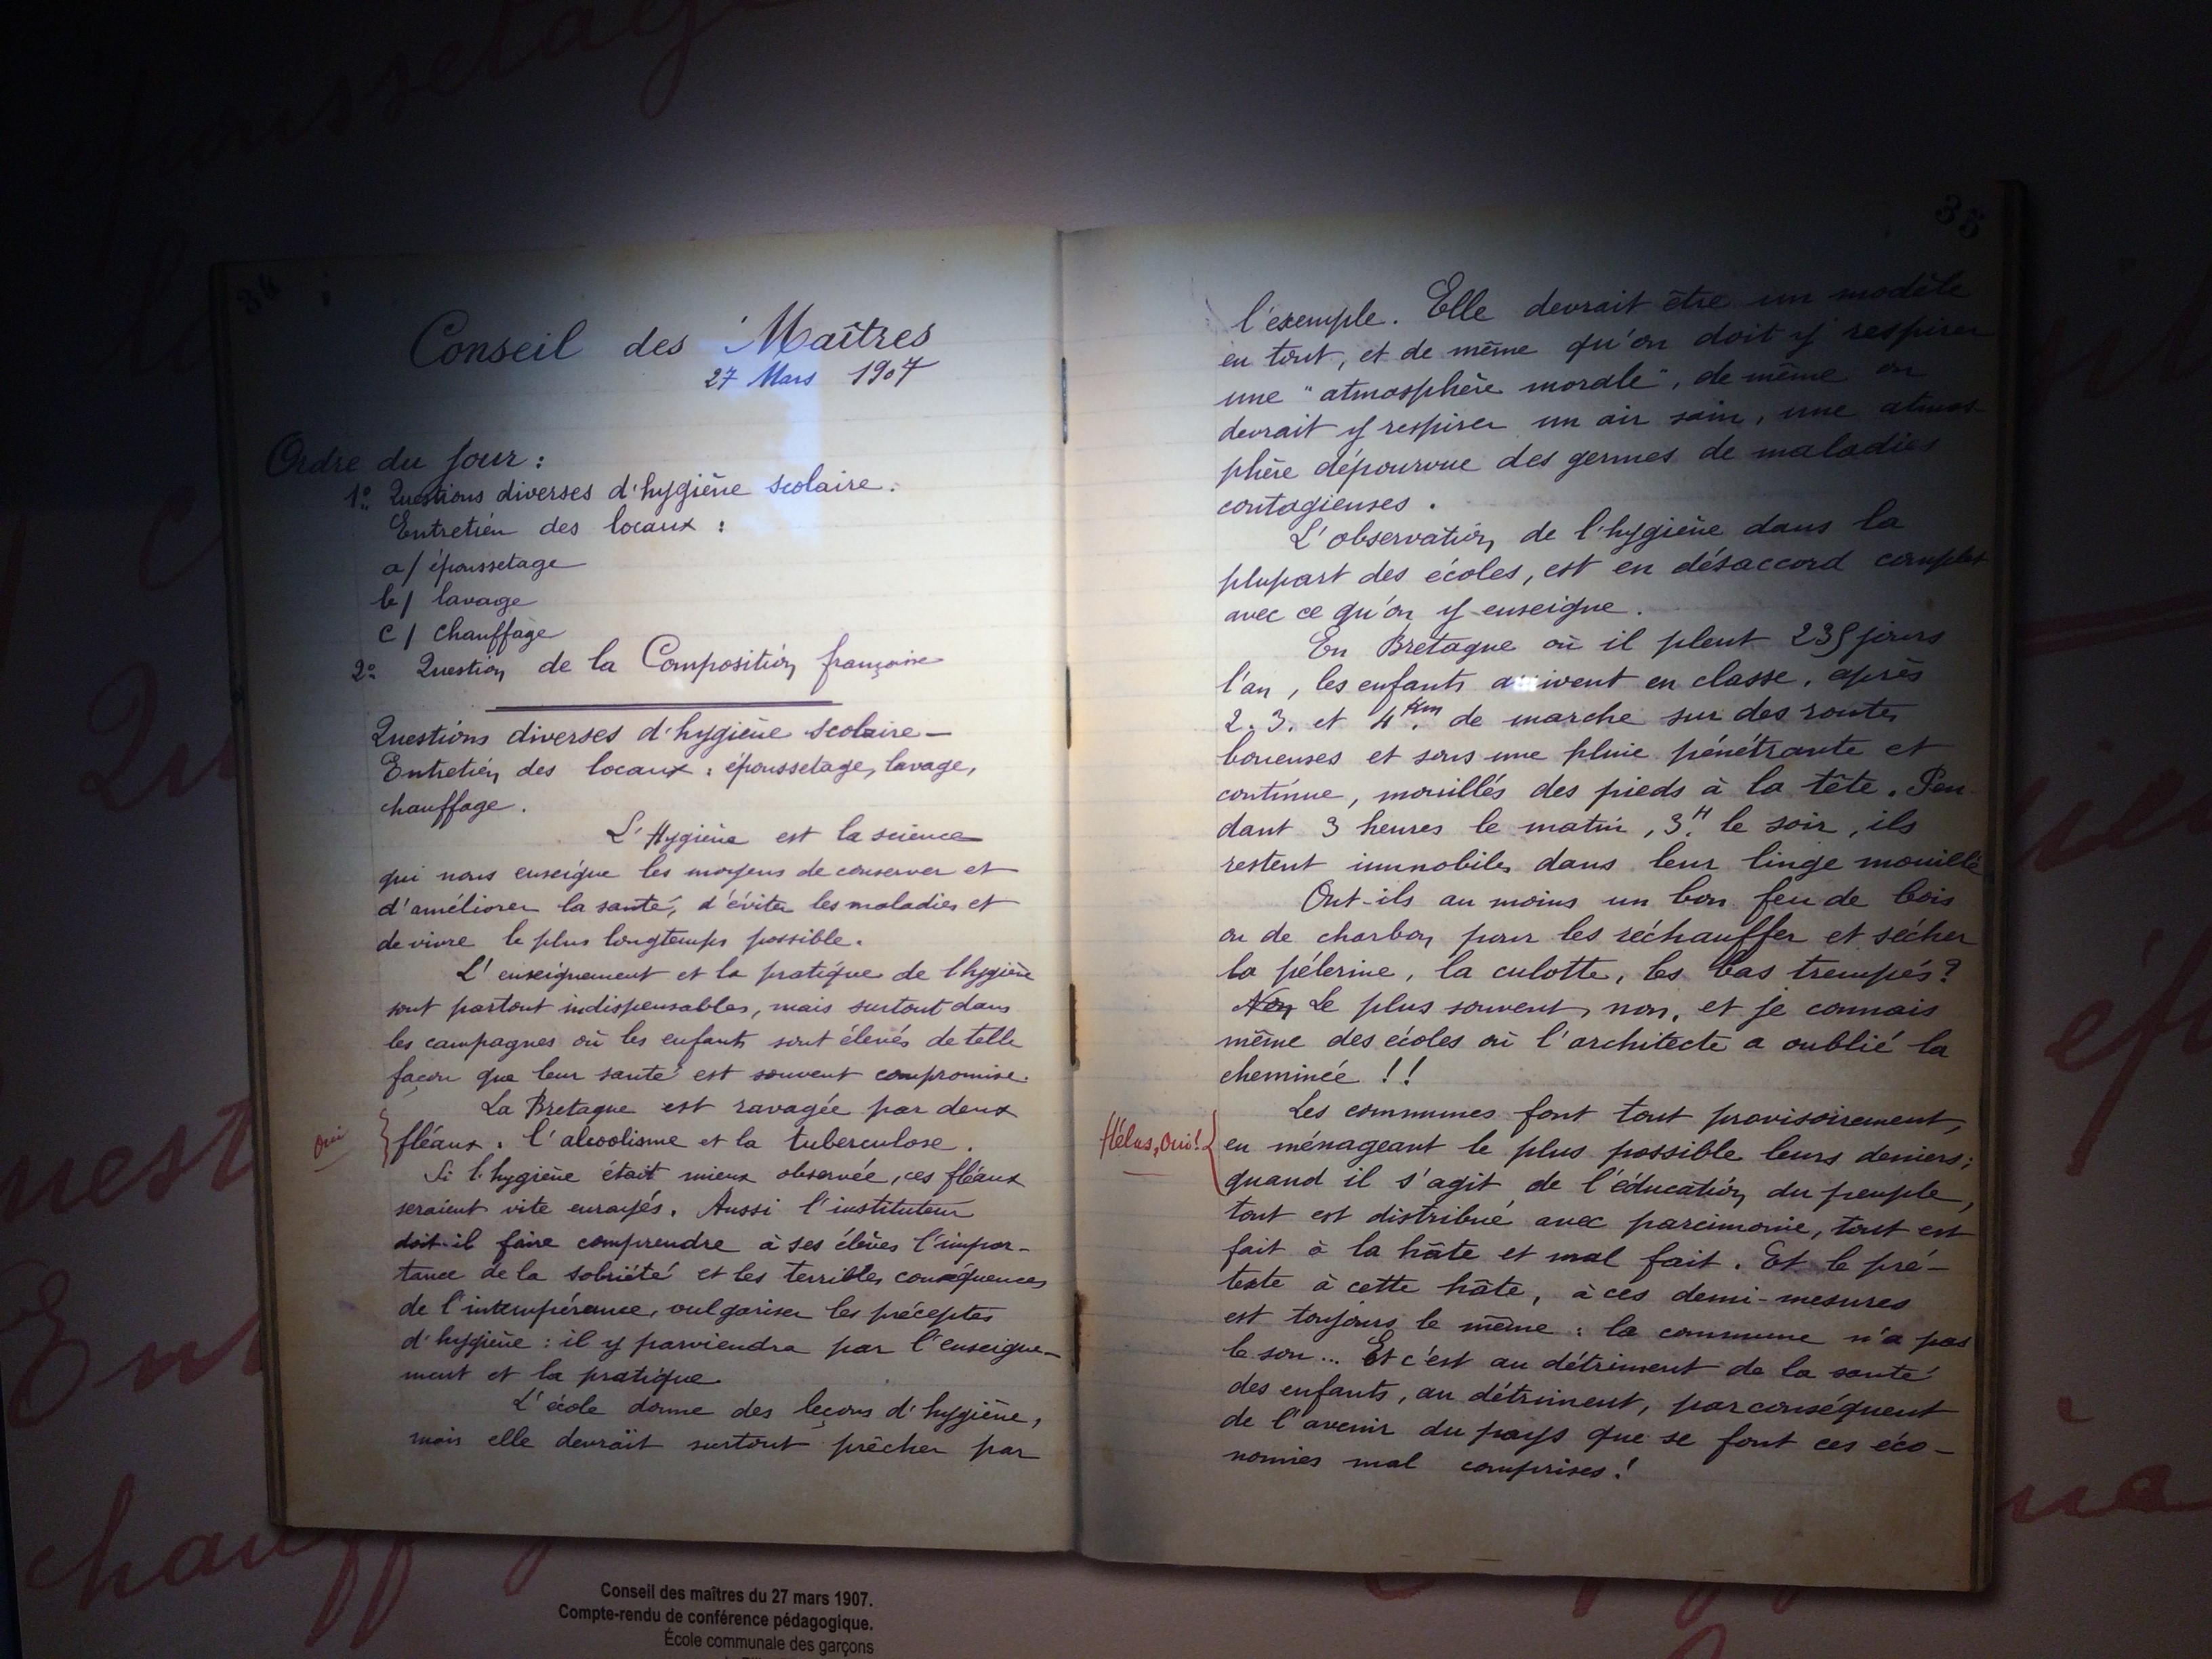 34
Conseil des Maîtres
27 Mars 1907
Ordre du jour :
1º Questions diverses d'hygiène scolaire.
Entretien des locaux :
a/ époussetage
b/ lavage
c/ chauffage
2º Question de la Composition française
Questions diverses d'hygiène scolaire —
Entretien des locaux : époussetage, lavage,
chauffage.
L'Hygiène est la science
qui nous enseigne les moyens de conserver et
d'améliorer la santé, d'éviter les maladies et
de vivre le plus longtemps possible.
L'enseignement et la pratique de l'hygiène
sont partout indispensables, mais surtout dans
les campagnes où les enfants sont élevés de telle
façon que leur santé est souvent compromise.
La Bretagne est ravagée par deux
Oui
fléaux : l'alcoolisme et la tuberculose.
Si l'hygiène était mieux observée, ces fléaux
seraient vite enrayés. Aussi l'instituteur
doit-il faire comprendre à ses élèves l'impor-
tance de la sobriété et les terribles conséquences
de l'intempérance, vulgariser les préceptes
d'hygiène : il y parviendra par l'enseigne-
ment et la pratique
L'école donne des leçons d'hygiène,
mais elle devrait surtout prêcher par
35
l'exemple. Elle devrait être un modèle
en tout, et de même qu'on doit y respirer
une "atmosphère morale", de même on
devrait y respirer un air sain, une atmos-
phère dépourvue des germes de maladies
contagieuses.
L'observation de l'hygiène dans la
plupart des écoles, est en désaccord complet
avec ce qu'on y enseigne.
En Bretagne où il pleut 235 jours
l'an, les enfants arrivent en classe, après
2. 3. et 4 Km. de marche sur des routes
boueuses et sous une pluie pénétrante et
continue, mouillés des pieds à la tête. Pen-
dant 3 heures le matin, 3 H. le soir, ils
restent immobiles dans leur linge mouillé
Ont-ils au moins un bon feu de bois
ou de charbon pour les réchauffer et sécher
la pélerine, la culotte, les bas trempés ?
Non Le plus souvent, non, et je connais
même des écoles où l'architecte a oublié la
cheminée !!
Les communes font tout provisoirement,
Hélas, Oui !
en ménageant le plus possible leurs deniers ;
quand il s'agit de l'éducation du peuple,
tout est distribué avec parcimonie, tout est
fait à la hâte et mal fait. Et le pré-
texte à cette hâte, à ces demi-mesures
est toujours le même : la commune n'a pas
le sou... Et c'est au détriment de la santé
des enfants, au détriment, par conséquent
de l'avenir du pays que se font ces éco-
nomies mal comprises !
Conseil des maîtres du 27 mars 1907.
Compte-rendu de conférence pédagogique.
École communale des garçons